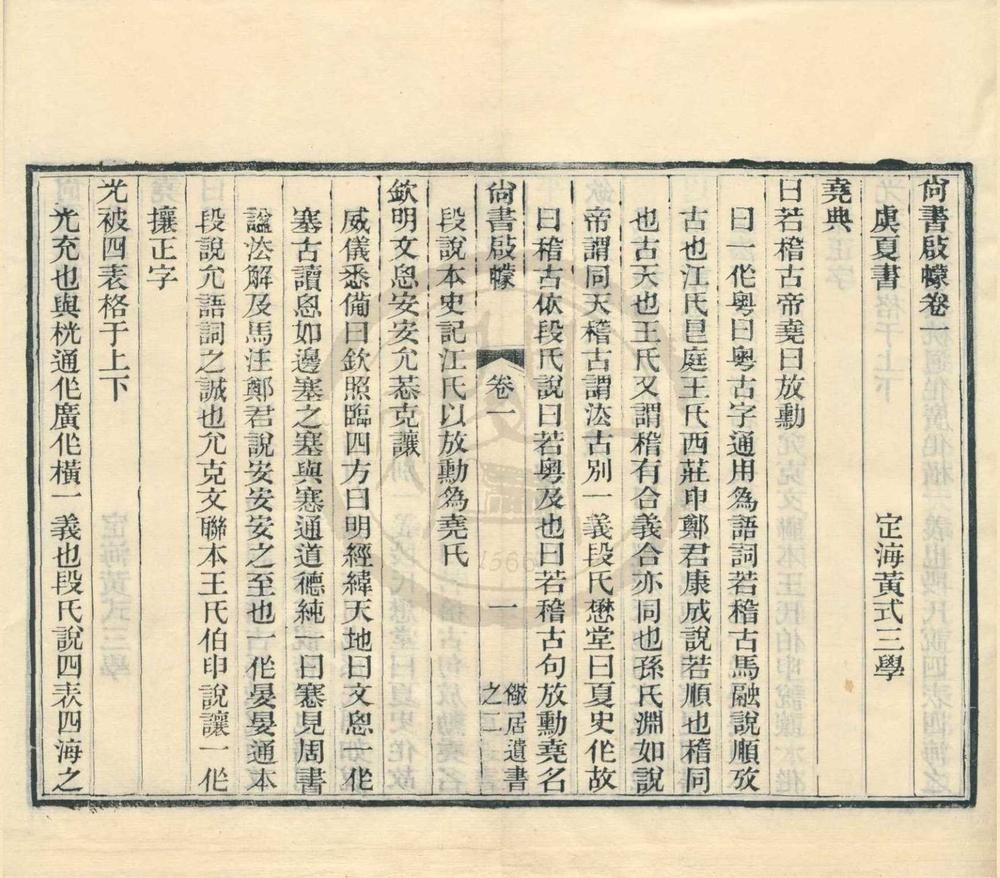 尙書啟幪卷一
虞夏書　定海黃式三學
堯典
曰若稽古帝堯曰放勳
曰一作粵曰粵古字通用爲語詞若稽古馬融說順攷
古也江氏艮庭王氏西莊申鄭君康成說若順也稽同
也古天也王氏又謂稽有合義合亦同也孫氏淵如說
帝謂同天稽古謂法古別一義段氏懋堂曰夏史作故
曰稽古依段氏說曰若粵及也曰若稽古句放勳堯名
尙書啟幪　卷一　一　儆居遺書之二
段說本史記江氏以放勳爲堯氏
欽明文思安安允恭克讓
威儀悉備曰欽照臨四方曰明經緯天地曰文思一作
塞古讀思如邊塞之塞與塞通道德純一曰塞見周書
諡法解及馬注鄭君說安安安之至也一作晏晏通本
段說允語詞之誠也允克文聯本王氏伯申說讓一作
攘正字
光被四表格于上下
光充也與桄通作廣作橫一義也段氏說四表四海之